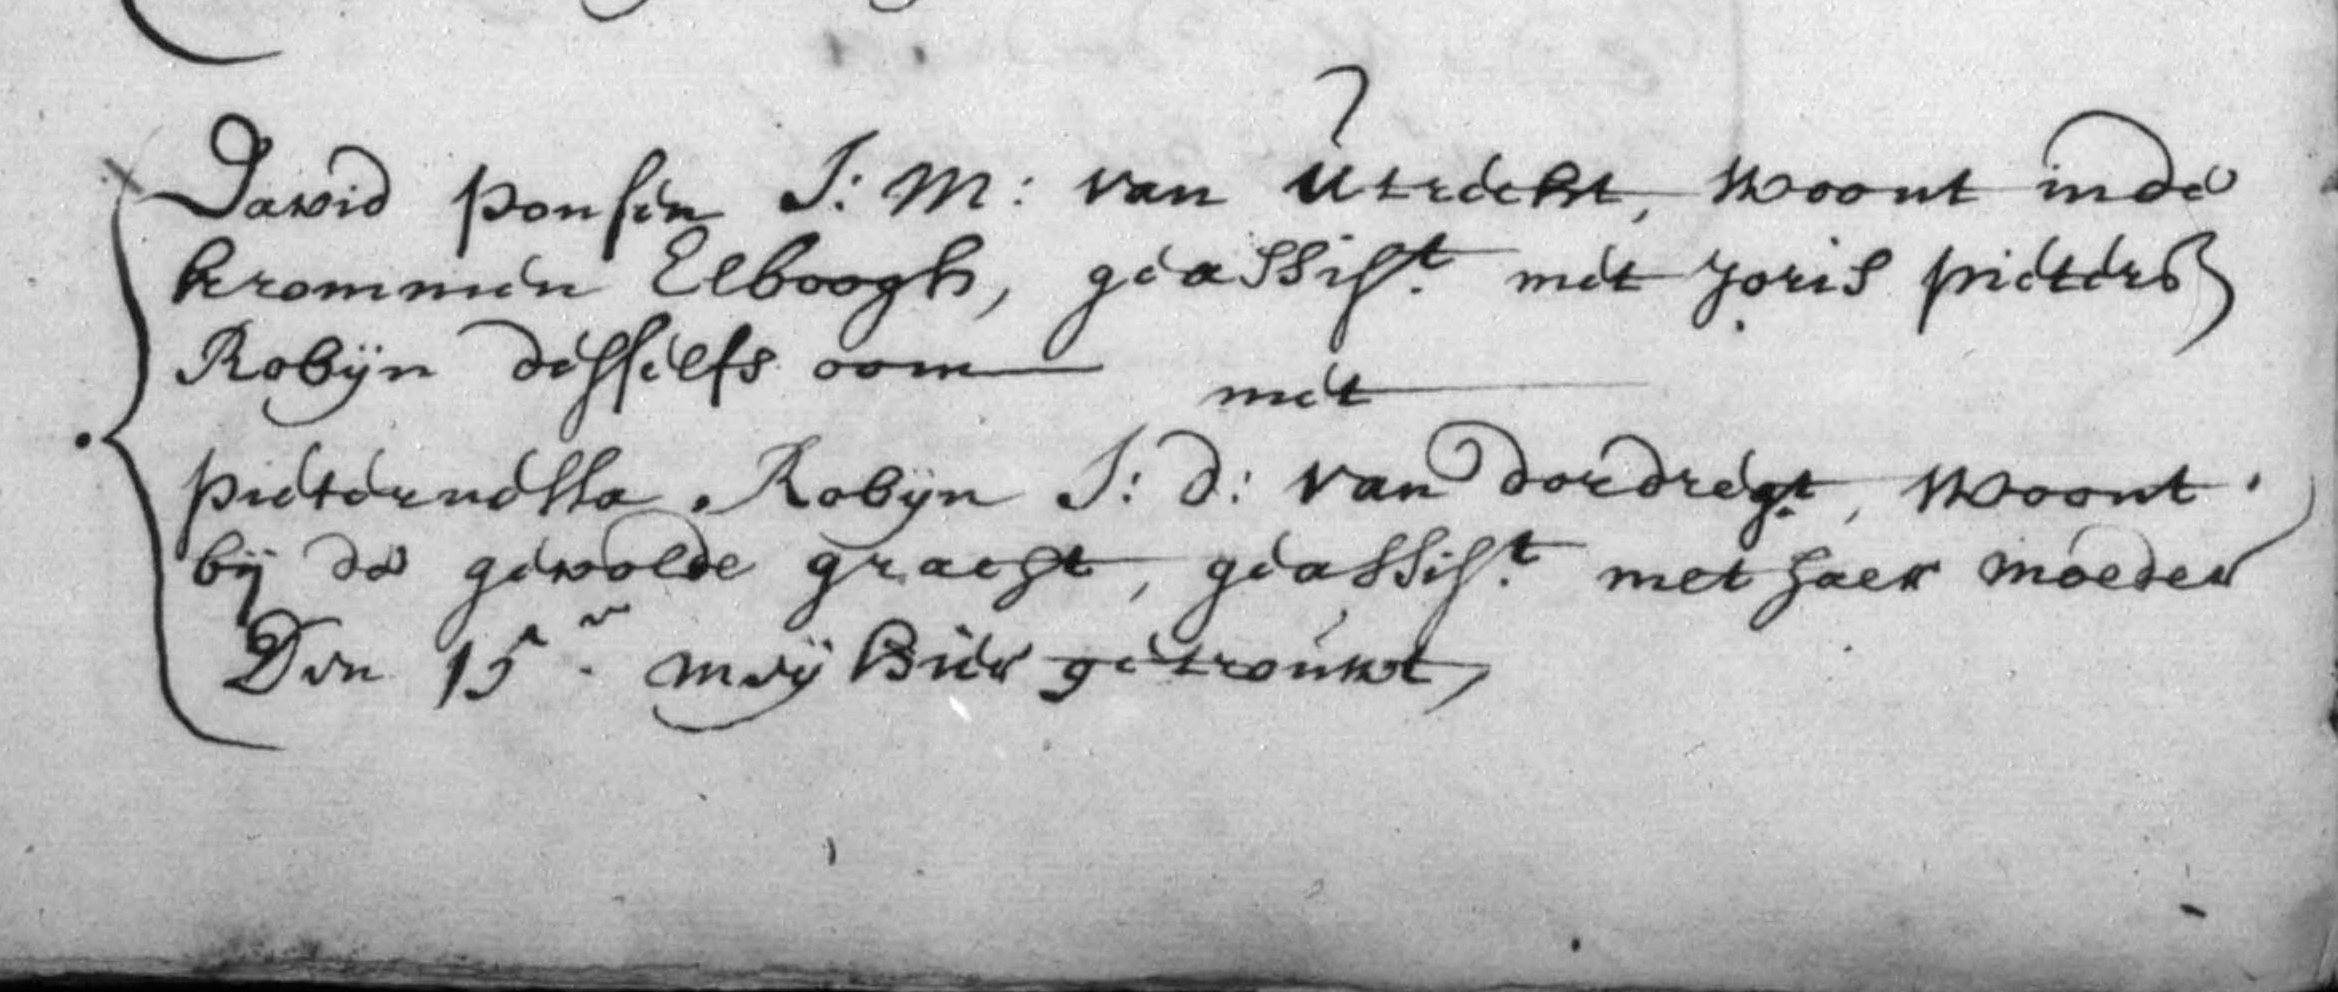 David ponsen J: M: van Utrecht, woont inde
krommen Elboogh, geassist. met Joris pieters
Robijn desselfs oom
met
pieternella Robijn J: d: van dordregt, woont
bij de gewolde gracht, geassist. met haer moeder
Den 15en meij hier getrouwt,